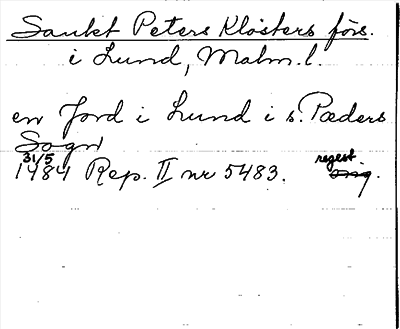 Sankt Peters Klosters förs.
i Lund, Malm.l.
en Jord i Lund i s. Pæders
Sogn
31/5 regest
1484 Rep. II nr 5483. orig.